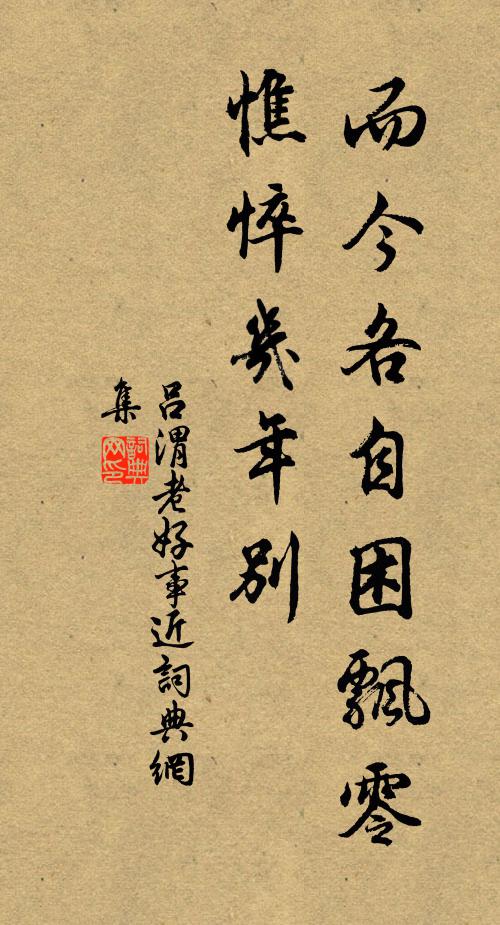 而今各自困飄零
憔悴幾年別
吕渭老好事近詞典網
集
詞典网印